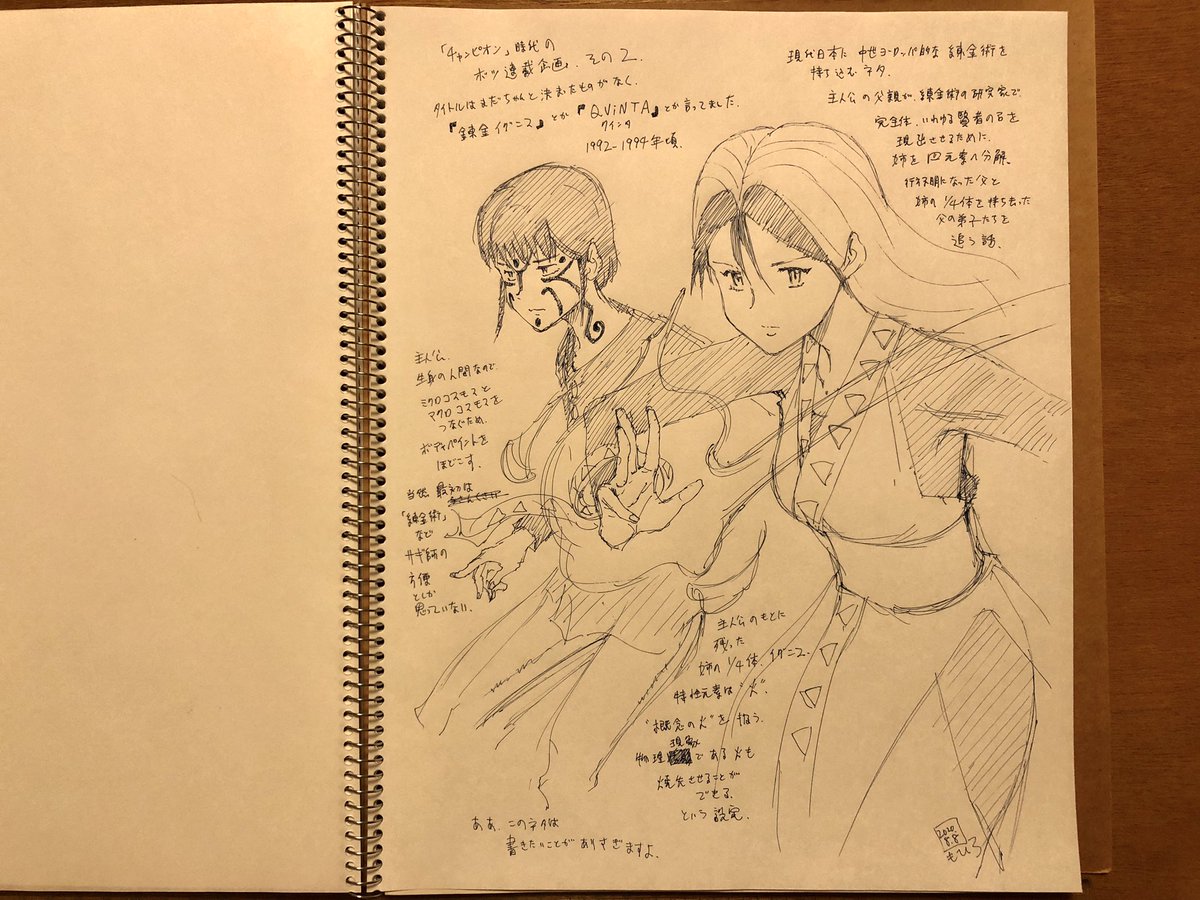 「チャンピオン」時代の
ボツ連載企画、その2.
タイトルはまだちゃんと決まったものがなく、
『錬金イグニス』とか『QViNTA』とか言ってました.
クインタ
1992-1994年頃.
現代日本に中世ヨーロッパ的な錬金術を
持ち込むネタ.
主人公の父親が、錬金術の研究家で
完全体、いわゆる賢者の石を
現出させるために、
姉を四元素へ分解、
行方不明になった父と
姉の1/4体を持ち去った
父の弟子たちを
追う話.
主人公.
生身の人間なので
ミクロコスモスと
マクロコスモスを
つなぐため、
ボディペイントを
ほどこす.
当然、最初は
「錬金術」
など
サギ師の
方便
としか
思っていない.
主人公のもとに
残った
姉の1/4体、イグニス.
特性元素は"火".
"概念の火"を扱う.
現象
物理で ある火も
焼失させることが
できる.
という設定.
ああ、このネタは
書きたいことがありすぎますよ.
2020
8.8
もひろ